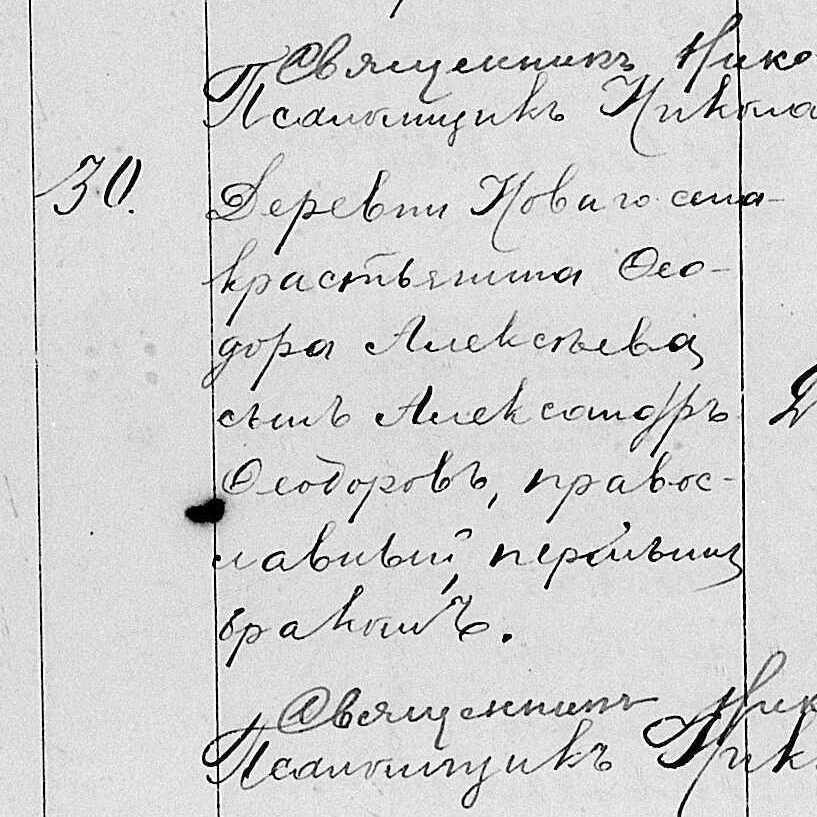 Священникъ Нико
Псаломщикъ Никола
30.
Деревни Новаго села
крестьянина Ѳео-
дора Алексѣева
сынъ Александръ
Ѳеодоровъ, правос-
лавный, первымъ
бракомъ.
Священникъ Ник
Псаломщикъ Ник